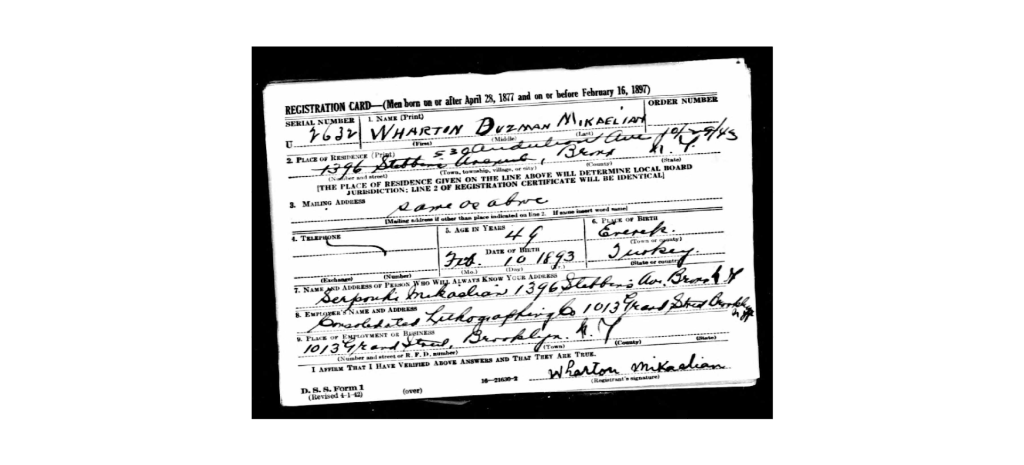 REGISTRATION CARD—(Men born on or after April 28, 1877 and on or before February 16, 1897)
SERIAL NUMBER 1. NAME (Print) ORDER NUMBER
U 2632 WHARTON DUZMAN MIKAELIAN
(First) (Middle) (Last)
530 Audubon Ave 10/29/43
2. PLACE OF RESIDENCE (Print)
1396 Stebbins Avenue, Bronx N. Y.
(Number and street) (Town, township, village, or city) (County) (State)
[THE PLACE OF RESIDENCE GIVEN ON THE LINE ABOVE WILL DETERMINE LOCAL BOARD
JURISDICTION; LINE 2 OF REGISTRATION CERTIFICATE WILL BE IDENTICAL]
3. MAILING ADDRESS
same as above
[Mailing address if other than place indicated on line 2. If same insert word same]
4. TELEPHONE 5. AGE IN YEARS 6. PLACE OF BIRTH
49 Everek
(Town or county)
DATE OF BIRTH
Feb. 10 1893 Turkey
(Exchange) (Number) (Mo.) (Day) (Yr.) (State or country)
7. NAME AND ADDRESS OF PERSON WHO WILL ALWAYS KNOW YOUR ADDRESS
Serpouhi Mikaelian 1396 Stebbins Av. Bronx N Y
8. EMPLOYER'S NAME AND ADDRESS
Consolidated Lithographing Co 1013 Grand Street Brooklyn
N Y
9. PLACE OF EMPLOYMENT OR BUSINESS
1013 Grand Street, Brooklyn N. Y
(Number and street or R. F. D. number) (Town) (County) (State)
I AFFIRM THAT I HAVE VERIFIED ABOVE ANSWERS AND THAT THEY ARE TRUE.
Wharton Mikaelian
D. S. S. Form 1 16—21630-2 (Registrant's signature)
(Revised 4-1-42) (over)